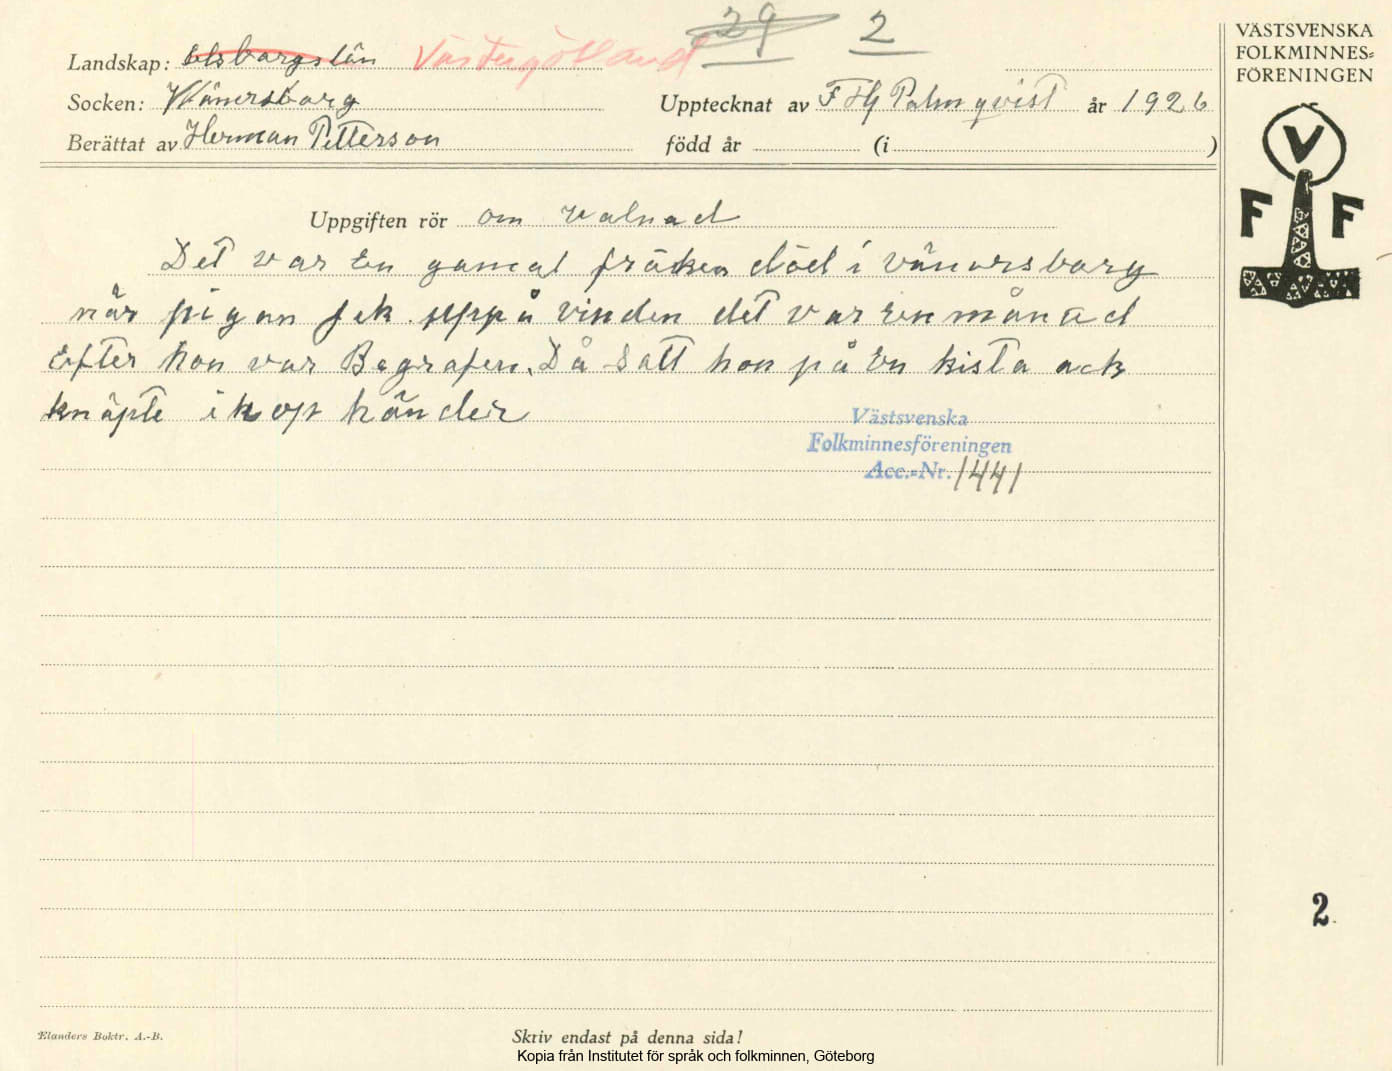 29 2
Landskap: Elsborgslän Västergötland
Socken: Wänersborg
Upptecknat av F Hj Palmqvist år 1926
Berättat av Herman Petterson född år (i )
VÄSTSVENSKA
FOLKMINNES=
FÖRENINGEN
V
F F
Uppgiften rör om valnad
Det var En gamal fröken död i vänersborg
när pigan fek uppå vinden det var En månad
Efter hon var Begrafen. Då Satt hon på En kista ack
knäpte ihop händer
Västsvenska
Folkminnesföreningen
Acc.=Nr. 1441
2
Elanders Boktr. A.-B.
Skriv endast på denna sida!
Kopia från Institutet för språk och folkminnen, Göteborg